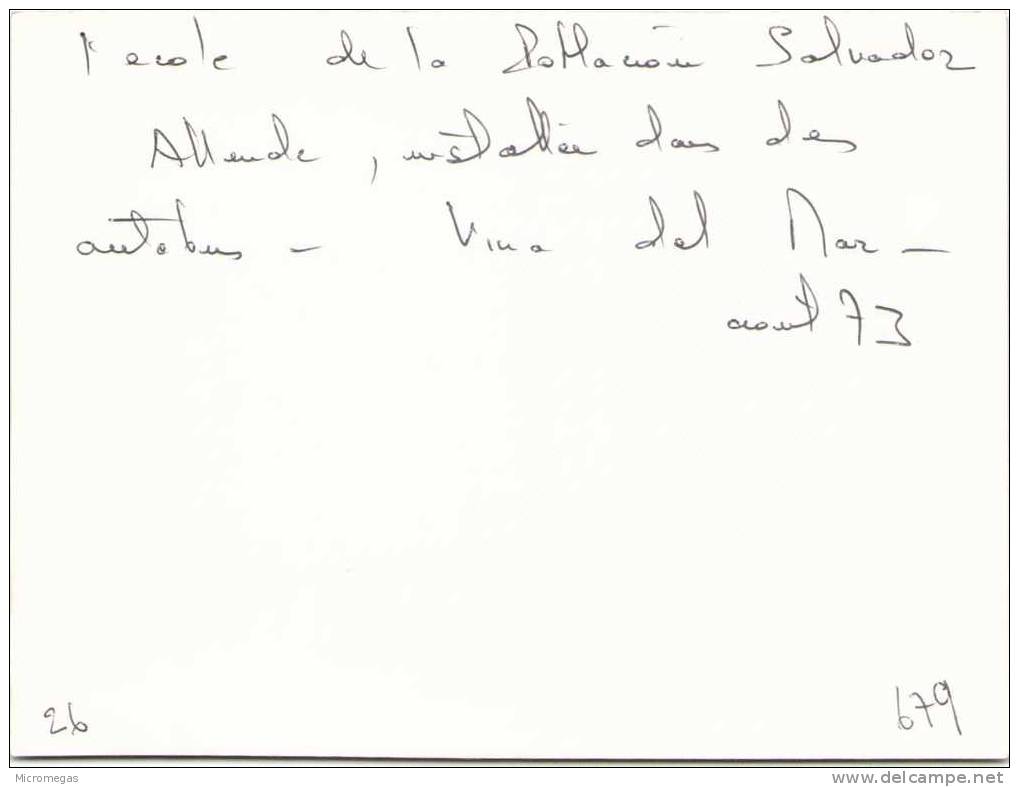 l'ecole de la Poblacion Salvador
Allende, installée dans des
autobus - Vina del Mar -
aout 73
26
679
Micromegas
www.delcampe.net